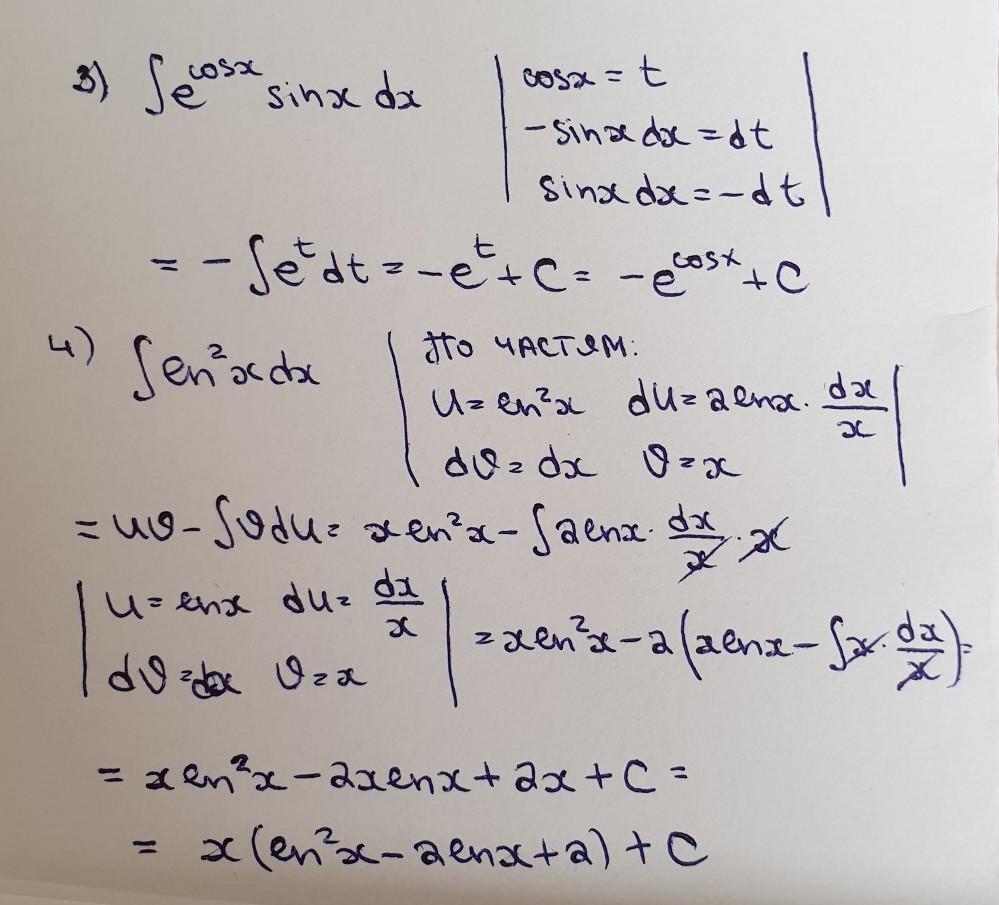 3) ∫e^cosx sinx dx | cosx = t
-sinx dx = dt
sinx dx = -dt |
= -∫e^t dt = -e^t + C = -e^cosx + C
4) ∫ln²x dx | По частям:
U = ln²x dU = 2lnx · dx/x |
dϑ = dx ϑ = x
= Uϑ - ∫ϑdU = xln²x - ∫2lnx · dx/x · x
| U = lnx dU = dx/x
dϑ = dx ϑ = x | = xln²x - 2(xlnx - ∫x · dx/x) =
= xln²x - 2xlnx + 2x + C =
= x(ln²x - 2lnx + 2) + C